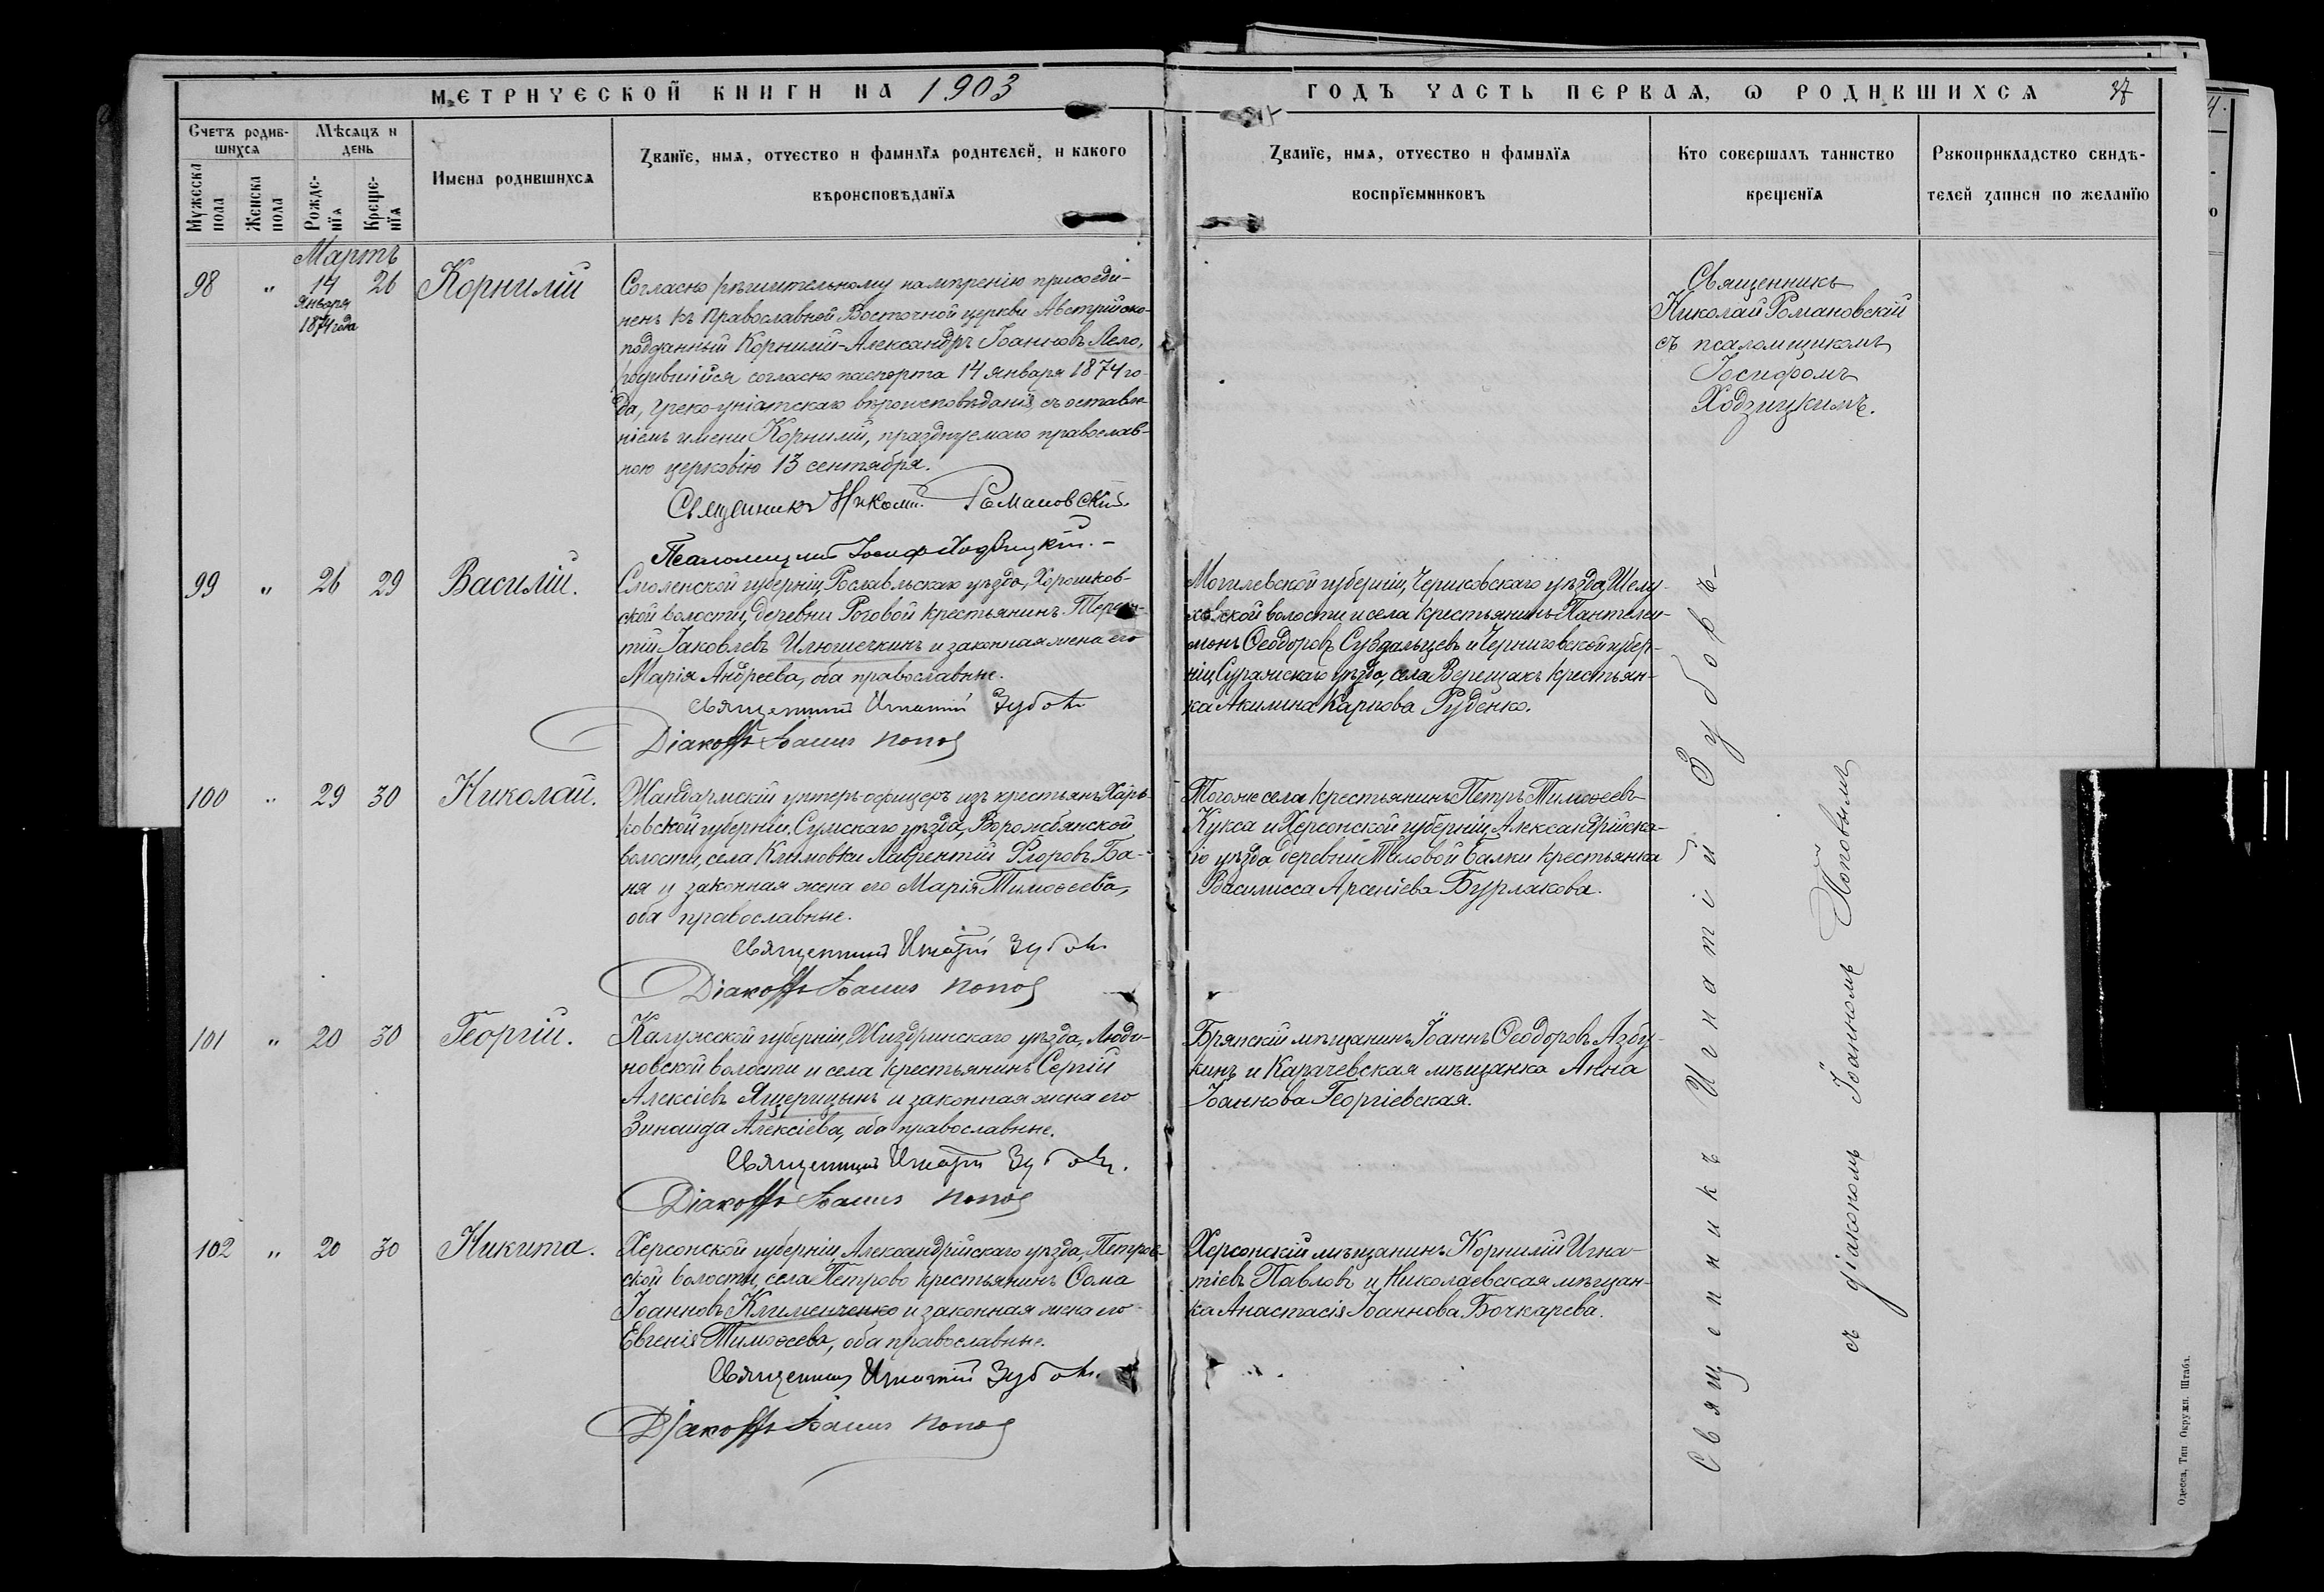 МЕТРИЧЕСКОЙ КНИГИ НА 1903
ГОДЪ ЧАСТЬ ПЕРВАЯ, Ѡ РОДИВШИХСЯ 37
Счетъ родив-
шихся
Мѣсяцъ и
день
Мужеска
пола
Женска
пола
Рожде-
нїя
Креще-
нїя
Имена родившихся
Званїе, имя, отчество и фамилїя родителей, и какого
вѣроисповѣданїя
Званїе, имя, отчество и фамилїя
воспрїемниковъ
Кто совершалъ таинство
крещенїя
Рукоприкладство свидѣ-
телей записи по желанїю
Мартъ
98 " 14 26 Корнилій
Января
1874 года
Согласно рѣшительному намѣренію присоеди-
ненъ къ Православной Восточной церкви Австрійско-
подданный Корнилій-Александръ Іоанновъ Лело,
родившійся согласно паспорта 14 января 1874 го-
да, греко-уніатскаго вѣроисповѣданія, съ оставле-
ніемъ имени Корнилій, празднуемаго православ-
ною церковію 13 сентября.
Священникъ Николай Романовскій.
Псаломщикъ Іосифъ Ходзицкій.-
Священникъ
Николай Романовскій
съ псаломщикомъ
Іосифомъ
Ходзицкимъ.
99 " 26 29 Василій.
Смоленской губерніи, Рославльскаго уѣзда, Хорошков-
ской волости, деревни Роговой крестьянинъ Терен-
тій Іаковлевъ Илюшечкинъ и законная жена его
Марія Андреева, оба православные.
Священникъ Игнатій Зубовъ
Діаконъ Іоаннъ Поповъ
Могилевской губерніи, Чериковскаго уѣзда, Шелу-
ховской волости и села крестьянинъ Пантелеи-
монъ Ѳеодоровъ Суздальцевъ и Черниговской губер-
ніи, Суражскаго уѣзда, села Верещакъ крестьян-
ка Акилина Карпова Руденко.
100 " 29 30 Николай.
Жандармскій унтеръ-офицеръ изъ крестьянъ Харь-
ковской губерніи, Сумскаго уѣзда, Ворожбянской
волости, села Климовки Лаврентій Егоровъ Ба-
ня и законная жена его Марія Тимоѳеева,
оба православные.
Священникъ Игнатій Зубовъ
Діаконъ Іоаннъ Поповъ
Того же села крестьянинъ Петръ Тимоѳеевъ
Кукса и Херсонской губерніи, Александрійска-
го уѣзда деревни Миловой балки крестьянка
Василисса Арсеніева Бурлакова.
101 " 20 30 Георгій.
Калужской губерніи, Жиздринскаго уѣзда, Люди-
новской волости и села крестьянинъ Сергій
Алексіевъ Ящерицынъ и законная жена его
Зинаида Алексіева, оба православные.
Священникъ Игнатій Зубовъ.
Діаконъ Іоаннъ Поповъ
Брянскій мѣщанинъ Іоаннъ Ѳеодоровъ Азбу-
кинъ и Карачевская мѣщанка Анна
Іоаннова Георгіевская.
102 " 20 30 Никита.
Херсонской губерніи, Александрійскаго уѣзда, Петров-
ской волости, села Петрово крестьянинъ Ѳома
Іоанновъ Клименченко и законная жена его
Евгенія Тимоѳеева, оба православные.
Священникъ Игнатій Зубовъ.
Діаконъ Іоаннъ Поповъ
Херсонскій мѣщанинъ Корнилій Игна-
тіевъ Павловъ и Николаевская мѣщан-
ка Анастасія Іоаннова Бочкарева.
Священникъ Игнатій Зубовъ
съ діакономъ Іоанномъ Поповымъ
Одесса, Тип. Окружн. Штаба.